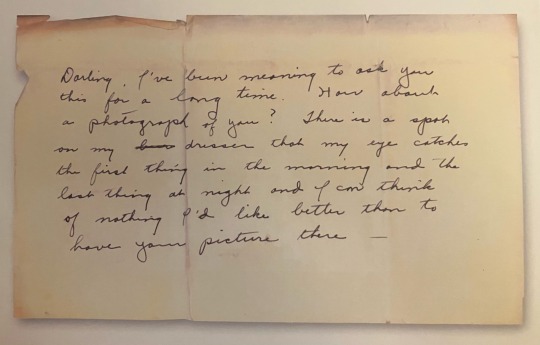 Darling, I've been meaning to ask you
this for a long time. How about
a photograph of you? There is a spot
on my dresser that my eye catches
the first thing in the morning and the
last thing at night and I can think
of nothing I'd like better than to
have your picture there —